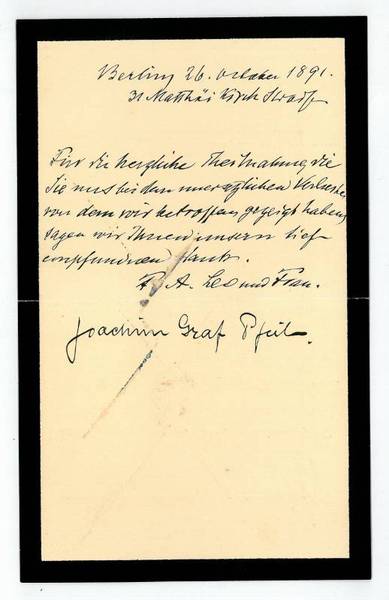 Berlin 26. October 1891.
31 Matthäi Kirch Straße
Für die herzliche Theilnahme, die
Sie uns bei dem unersetzlichen Verluste,
von dem wir betroffen, gezeigt haben,
sagen wir Ihnen unsern tief
empfundenen Dank.
F. A. Leo und Frau.
Joachim Graf Pfeil.